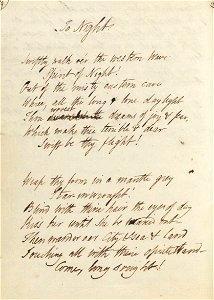 To Night.
Swiftly walk o'er the western wave
Spirit of Night!
Out of the misty eastern cave
Where, all the long & lone daylight
wovest
Thou dreams of joy & fear,
Which make thee terrible & dear
Swift be thy flight!
Wrap thy form in a mantle grey
Star-inwrought!
Blind with thine hair the eyes of day
Kiss her until she be wearied out
Then wander o'er City & sea & land
Touching all with thine opiate wand
Come, long sought!